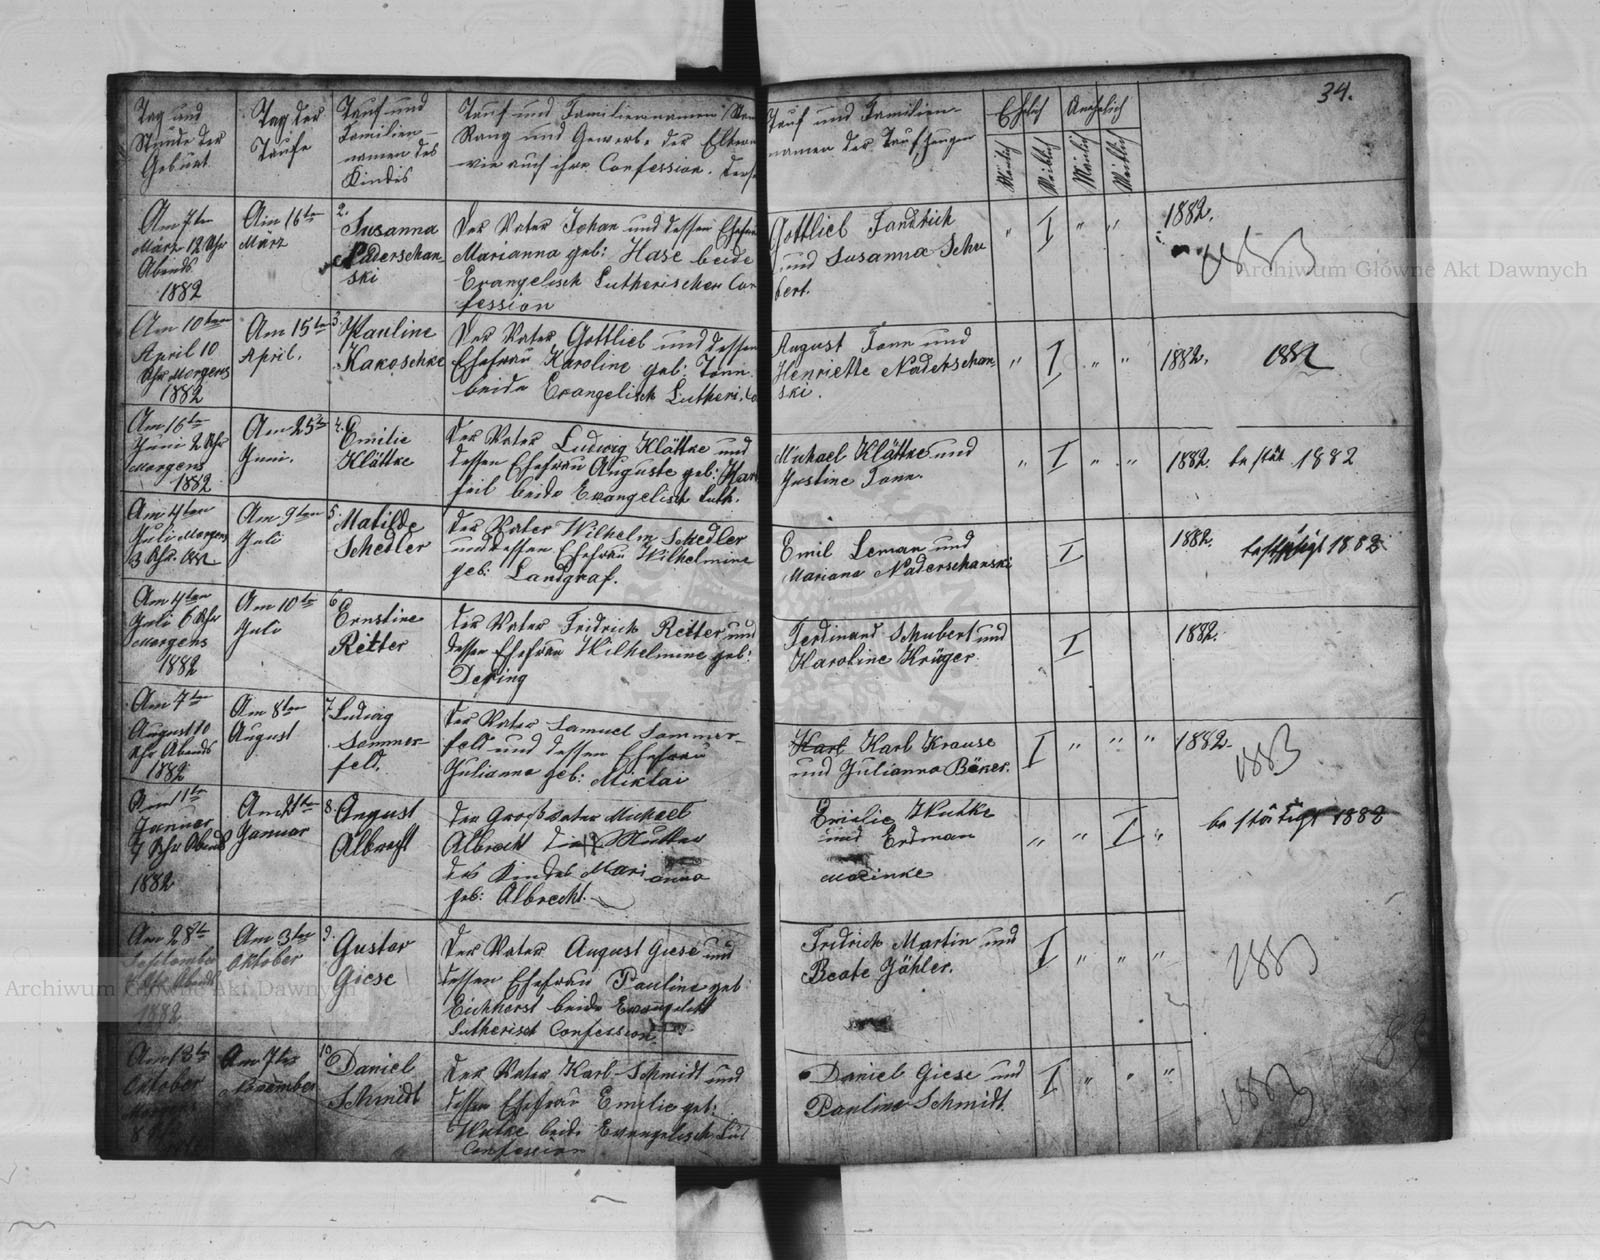 34.
Tag und
Stunde der
Geburt
Tag der
Taufe
Tauf und
Familien-
namen des
Kindes
Tauf und Familiennamen
Rang und Gewerbe der Eltern
wie auch ihre Confession.
Tauf und Familien-
namen der Taufzeugen
Ehelich
Unehelich
Mänlich
Weiblich
Mänlich
Weiblich
Am 7ten
März 12 Uhr
Abends
1882
Am 16ten
März
2.
Susanna
Naderschan-
ski
Der Vater Johan und dessen Ehefrau
Marianna geb: Hase beide
Evangelisch Lutherischer Con
fession
Gottlieb Fandrich
und Susanna Schu
bert.
" I " "
1882.
1883
Am 10ten
April 10
Uhr Morgens
1882
Am 15ten
April.
3.
Pauline
Kakoschke
Der Vater Gottlieb und dessen
Ehefrau Karoline geb: Tonn.
beide Evangelisch Lutheri.
August Tonn und
Henriette Naderschan
ski.
" I " "
1882.
1882
Am 16ten
Juni 2 Uhr
Morgens
1882
Am 25ten
Juni.
4.
Emilie
Klättke
Der Vater Ludwig Klättke und
dessen Ehefrau Auguste geb: Har
feil beide Evangelisch Luth.
Michael Klättke und
Justine Tonn.
" I " "
1882. bestät 1882
Am 4ten
Juli Morgens
3 Uhr. 1882
Am 9ten
Juli
5.
Matilde
Schedler
Der Vater Wilhelm Schedler
und dessen Ehefrau Wilhelmine
geb: Landgraf.
Emil Leman und
Mariana Naderschanski
I
1882. bestätigt 1882
Am 4ten
Juli 6 Uhr
Morgens
1882
Am 10ten
Juli
6.
Ernstine
Ritter
Der Vater Fridrich Ritter und
dessen Ehefrau Wilhelmine geb:
Dering
Ferdinand Schubert und
Karoline Krüger.
I
1882.
Am 7ten
August 10
Uhr Abends
1882
Am 8ten
August
7.
Ludwig
Sommer-
feld.
Der Vater Samuel Sommer-
feld und dessen Ehefrau
Julianna geb: Miklai
Karl Karl Krause
und Julianna Böker.
I " " "
1882.
1883
Am 11ten
Januar
7 Uhr Abends
1882
Am 21ten
Januar
8.
August
Albrecht
Der Großvater Michael
Albrecht die Mutter
des Kindes Marianna
geb: Albrecht.
Emilie Wutke
und Erdman
" " I "
bestätigt 1882
Am 28ten
September
1882
Am 3ten
Oktober
9.
Gustav
Giese
Der Vater August Giese und
dessen Ehefrau Pauline geb
Eichhorst beide Evangelisch
Lutherisch Confession.
Fridrich Martin und
Beate Jähler.
I " " "
1883
Am 13ten
Oktober
Morgens
Am 7ten
November
10.
Daniel
Schmidt
Der Vater Karl Schmidt und
dessen Ehefrau Emilie geb:
Wutke beide Evangelisch Lut
Confession
Daniel Giese und
Pauline Schmidt.
I " " "
1883
Archiwum Główne Akt Dawnych
Archiwum Główne Akt Dawnych